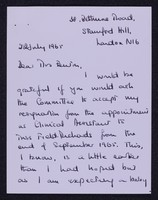 Road,
Stamford Hill,
London N16
2nd July 1965
Dear Mrs
I would be
grateful if you would ask
the Committee to accept my
resignation from the appointment
as Clinical Assistant to
Miss from the
end of September 1965. This,
I know, is a little earlier
than I had hoped but
as I am expecting a baby